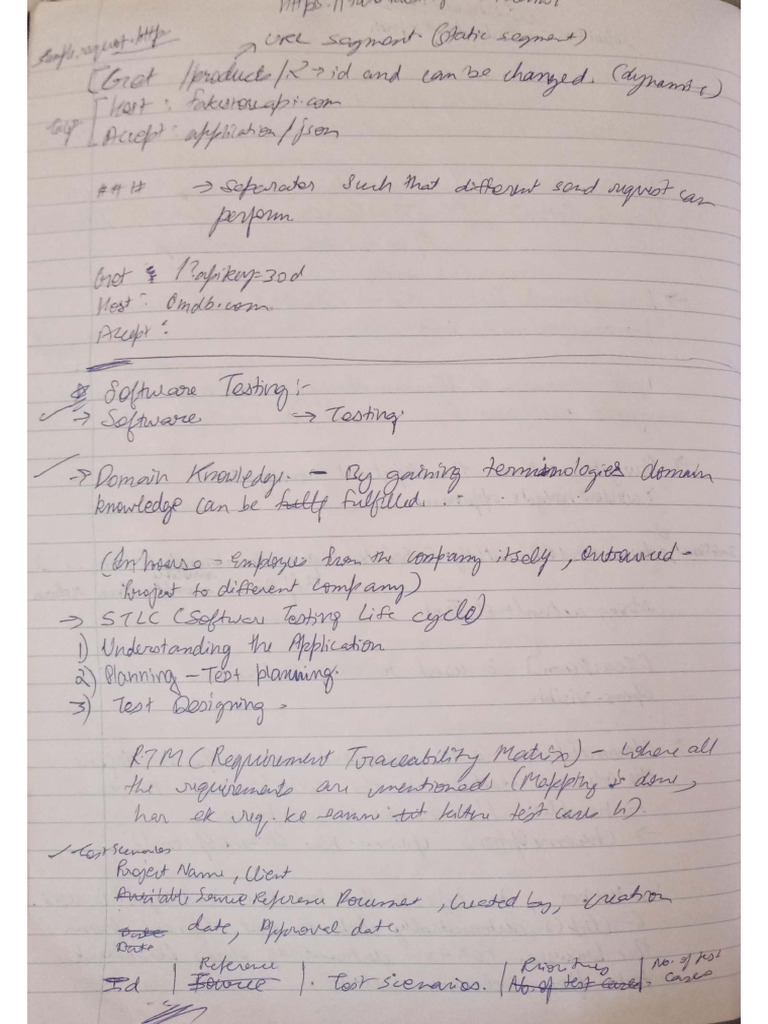 https://
sample.request.http
URL segment (static segment)
Get /products/2 → id and can be changed. (dynamic)
Host : fakestoreapi.com
Accept : application/json
### → Separator such that different send request can
perform
Get /?apikey=30d
Host : Omdb.com
Accept :
Software Testing :-
→ Software → Testing.
→ Domain Knowledge. - By gaining terminologies domain
knowledge can be fully fulfilled.
(Inhouse - Employee from the company itself, outsourced -
Project to different company)
→ STLC (Software Testing Life cycle)
1) Understanding the Application
2) Planning - Test planning.
3) Test Designing -
RTM (Requirement Traceability Matrix) - where all
the requirements are mentioned (Mapping is done,
har ek req. ke saamne kitne test cases h).
Test Scenarios
Project Name, Client
Available Source Reference Document, Created by, creation
Date date, Approval date.
Date
Reference Priorities No. of test
Id | Source | Test scenarios. | No. of test cases cases